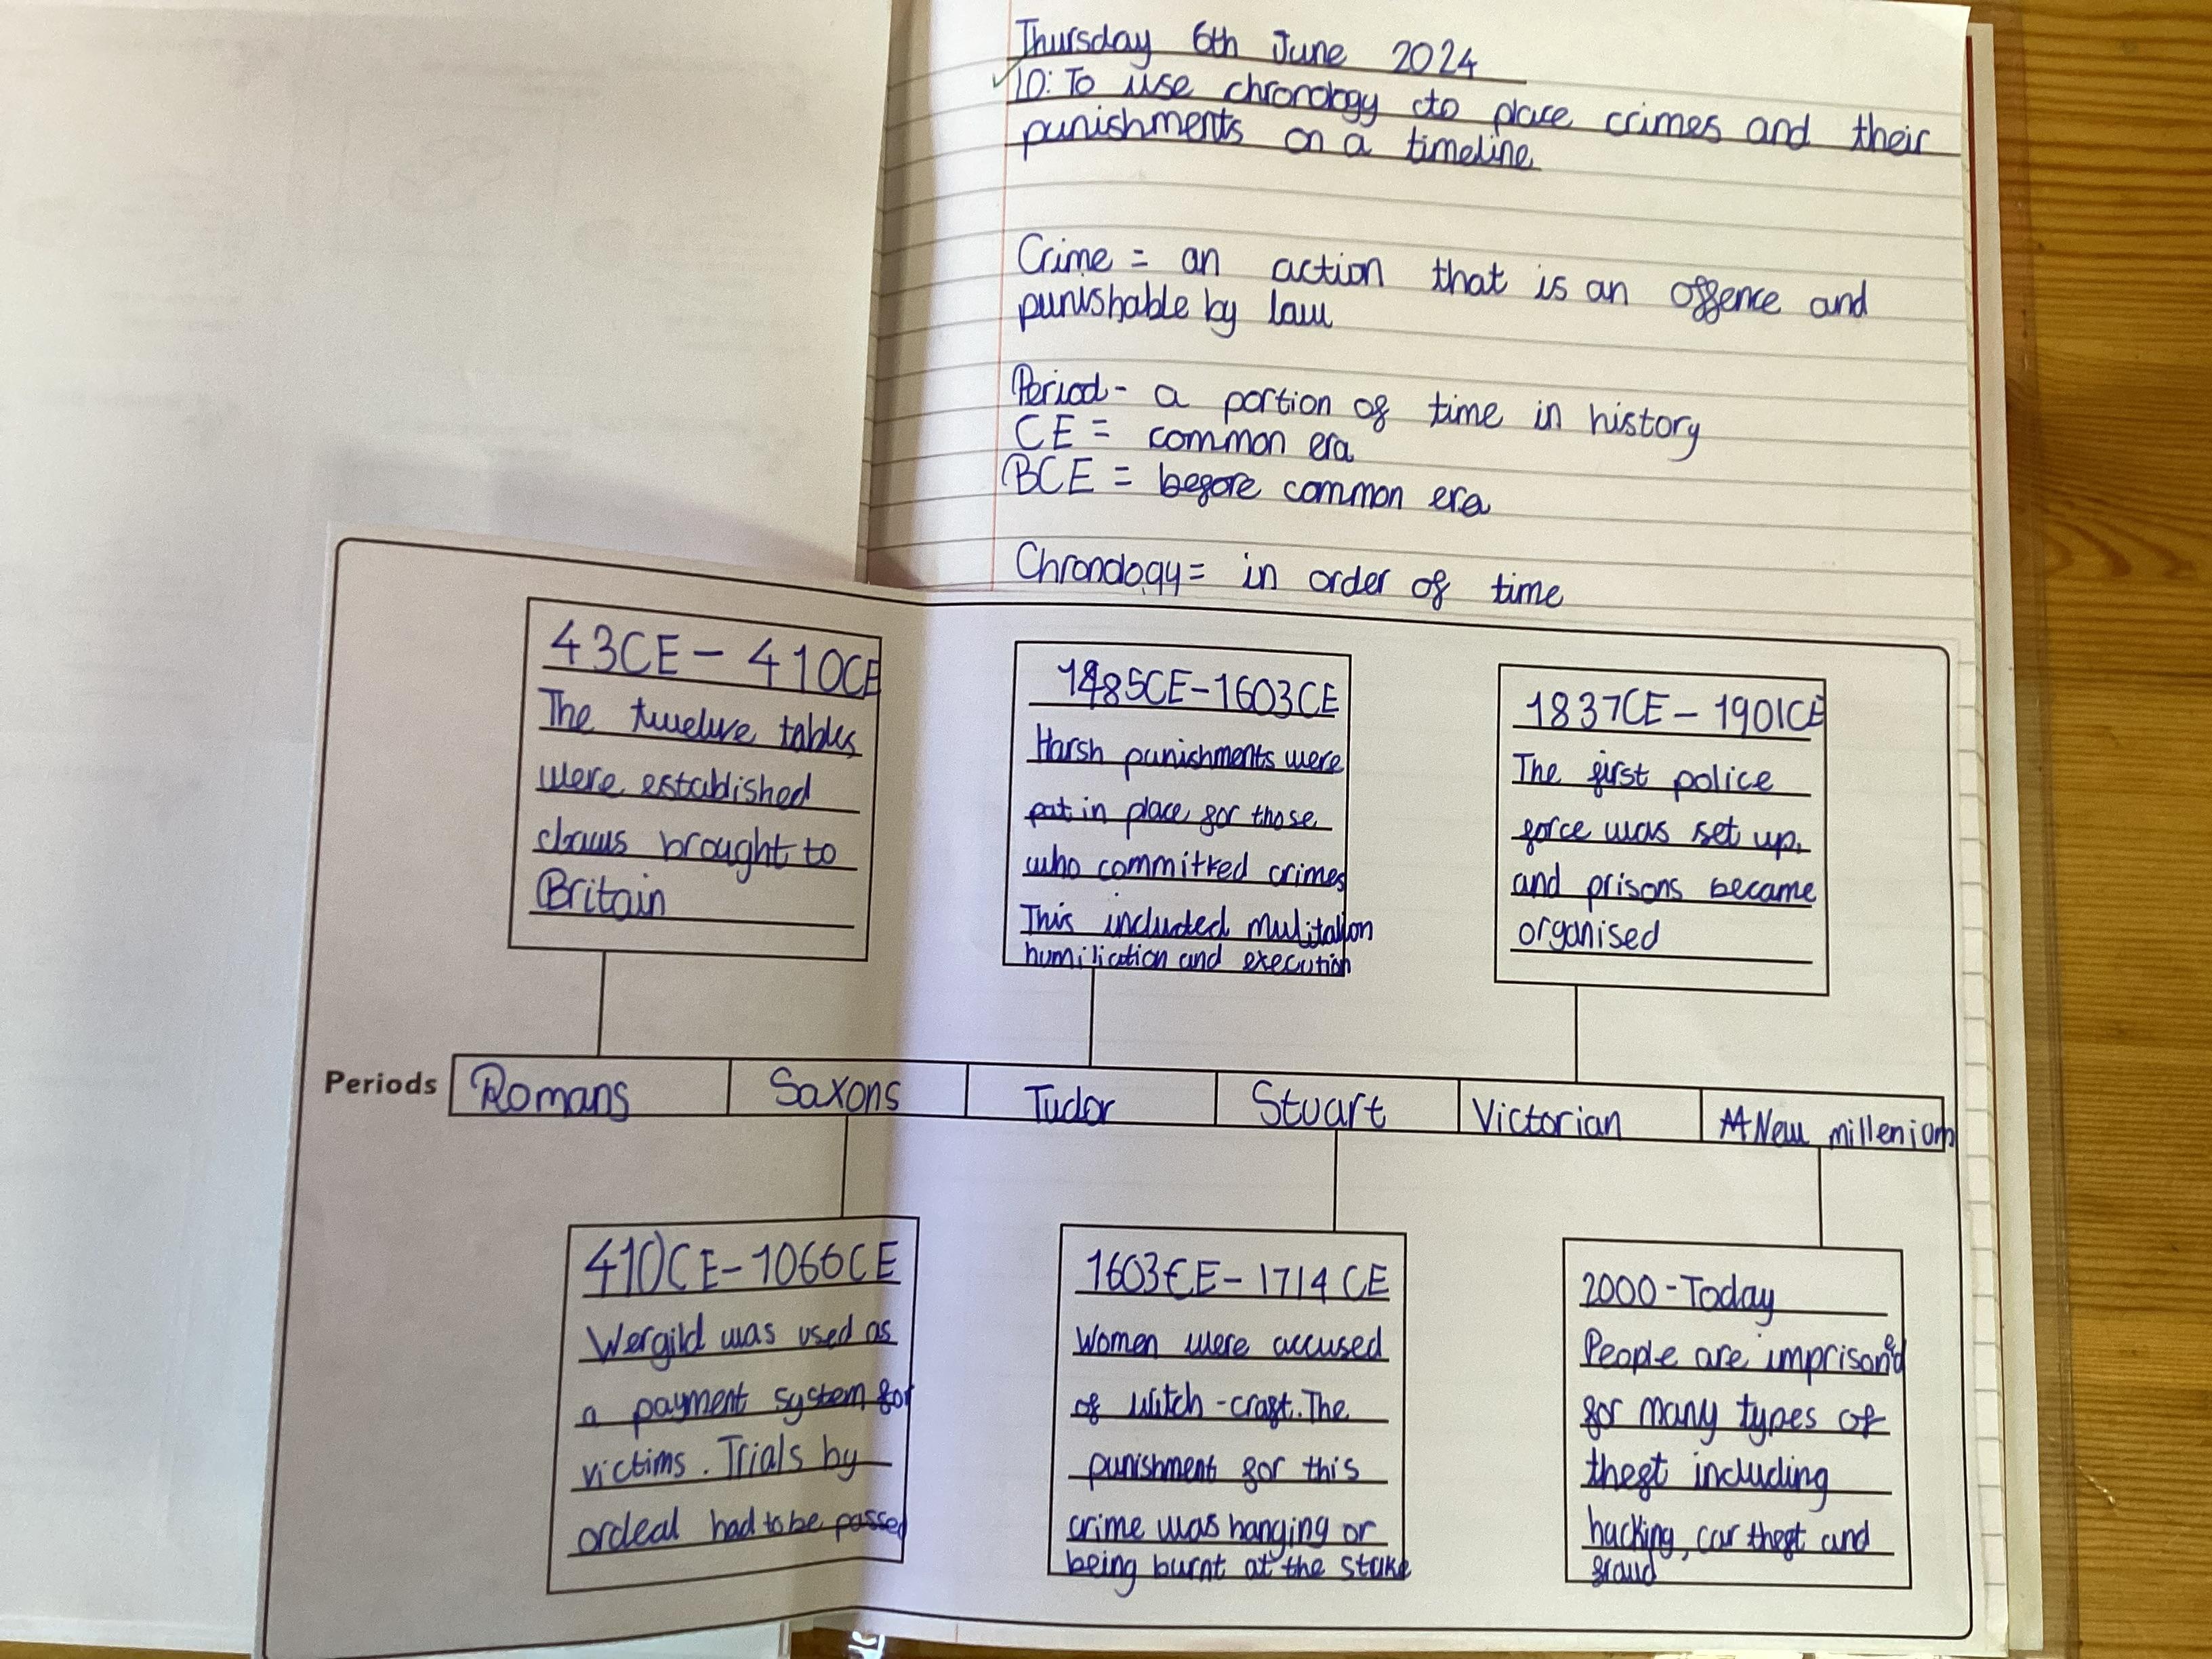 Thursday 6th June 2024
LO: To use chronology to place crimes and their
punishments on a timeline
Crime = an action that is an offence and
punishable by law
Period - a portion of time in history
CE = common era
BCE = before common era
Chronology = in order of time
43CE - 410CE
The twelve tables
were established
laws brought to
Britain
1485CE - 1603CE
Harsh punishments were
put in place for those
who committed crimes
This included mulitation
humiliation and execution
1837CE - 1901CE
The first police
force was set up,
and prisons became
organised
Periods Romans Saxons Tudor Stuart Victorian New millenium
410CE - 1066CE
Wergild was used as
a payment system for
victims. Trials by
ordeal had to be passed
1603CE - 1714CE
Women were accused
of witch-craft. The
punishment for this
crime was hanging or
being burnt at the stake
2000 - Today
People are imprisoned
for many types of
theft including
hacking, car theft and
fraud